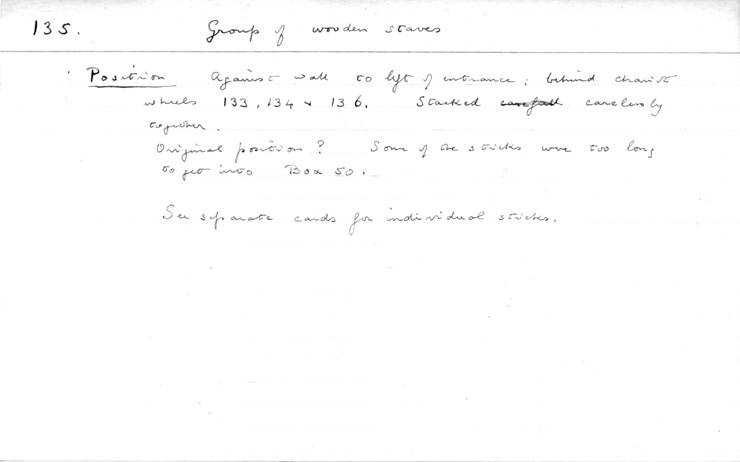 135. Group of wooden staves
Position Against wall to left of entrance; behind chariot
wheels 133, 134 + 136. Stacked careful carelessly
together.
Original position? Some of the sticks were too long
to get into Box 50.
See separate cards for individual sticks.